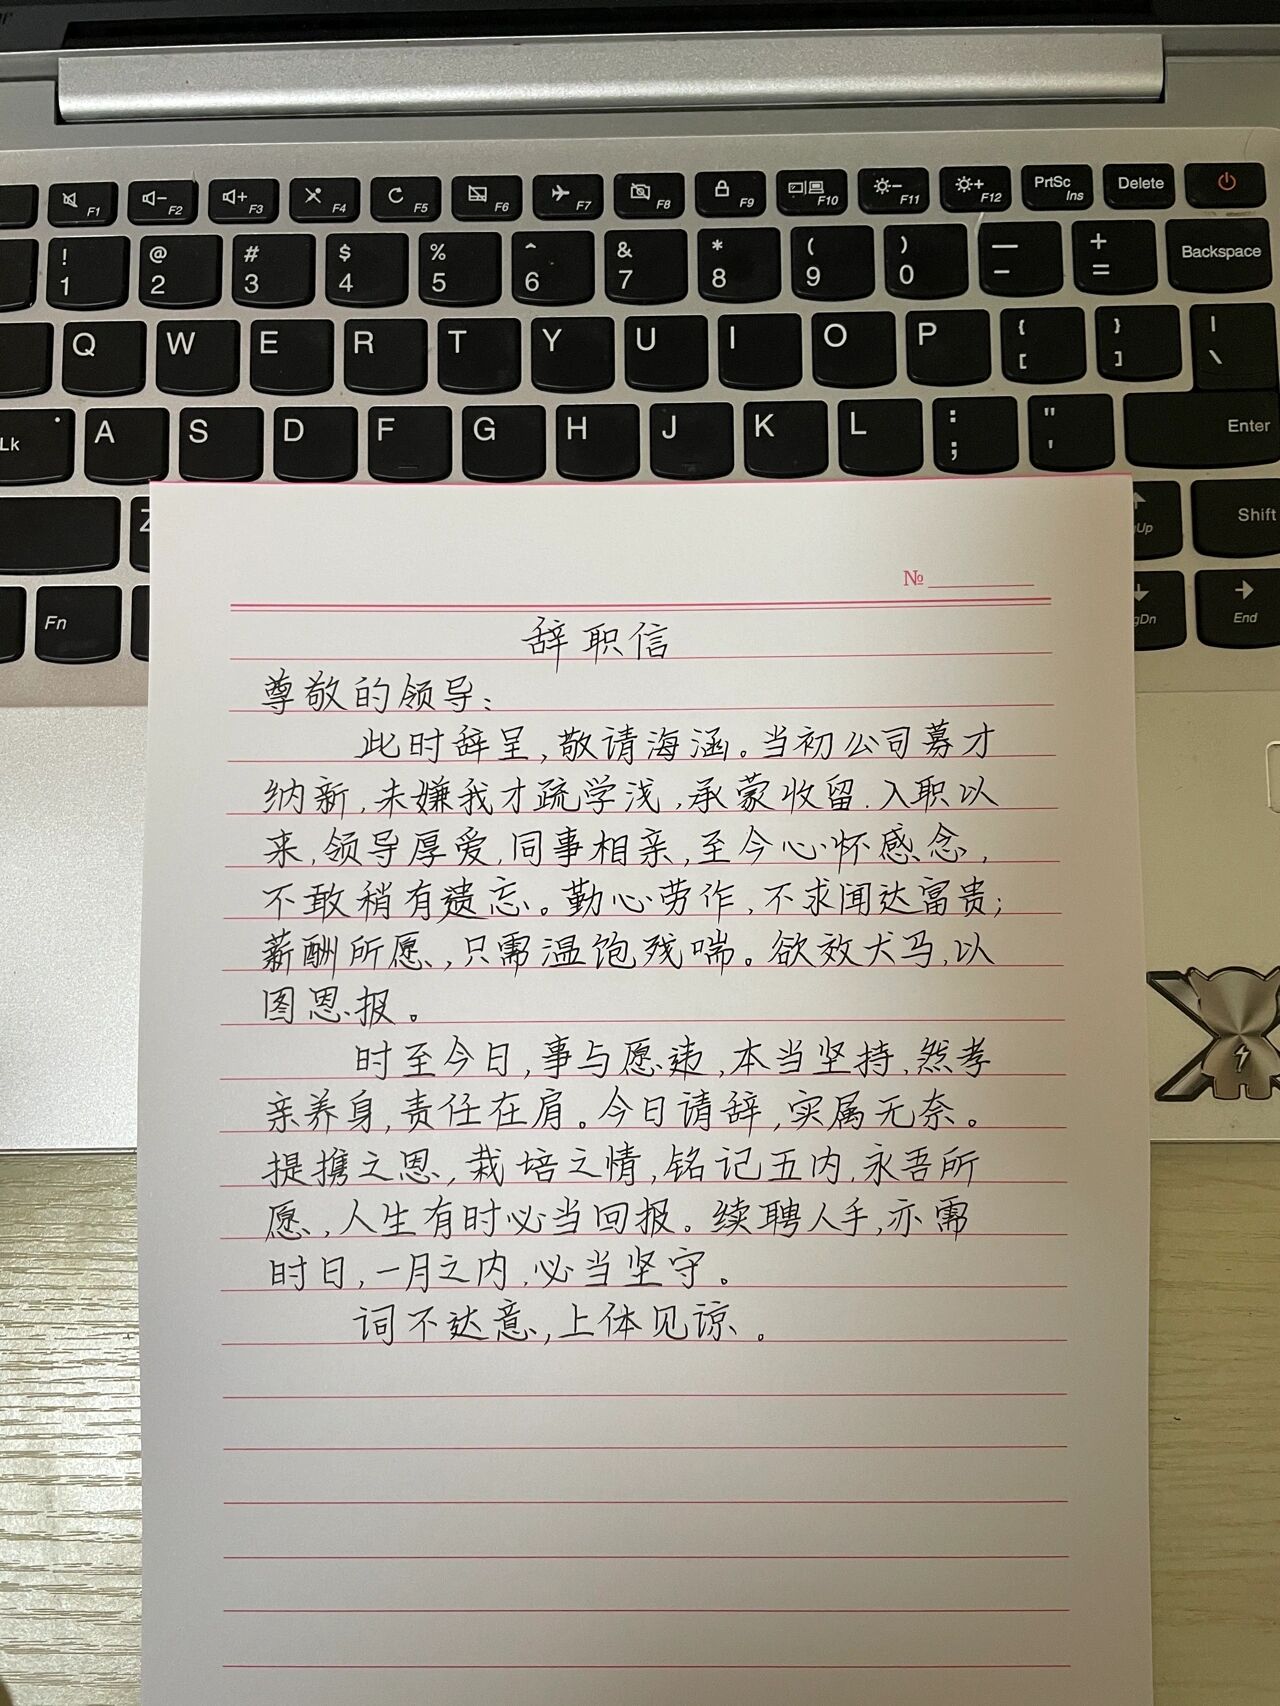 F1 F2 F3 F4 F5 F6 F7 F8 F9 F10 F11 F12 PrtSc Ins Delete
! 1 @ 2 # 3 $ 4 % 5 ^ 6 & 7 * 8 ( 9 ) 0 — - + = Backspace
Q W E R T Y U I O P { [ } ] | \
Lk A S D F G H J K L : ; " ' Enter
Z gUp Shift
Fn gDn End
№
辞职信
尊敬的领导:
此时辞呈,敬请海涵。当初公司募才
纳新,未嫌我才疏学浅,承蒙收留.入职以
来,领导厚爱,同事相亲,至今心怀感念,
不敢稍有遗忘。勤心劳作,不求闻达富贵;
薪酬所愿,只需温饱残喘。欲效犬马,以
图恩报。
时至今日,事与愿违,本当坚持,然孝
亲养身,责任在肩。今日请辞,实属无奈。
提携之恩,栽培之情,铭记五内,永吾所
愿,人生有时必当回报。续聘人手,亦需
时日,一月之内,必当坚守。
词不达意,上体见谅。